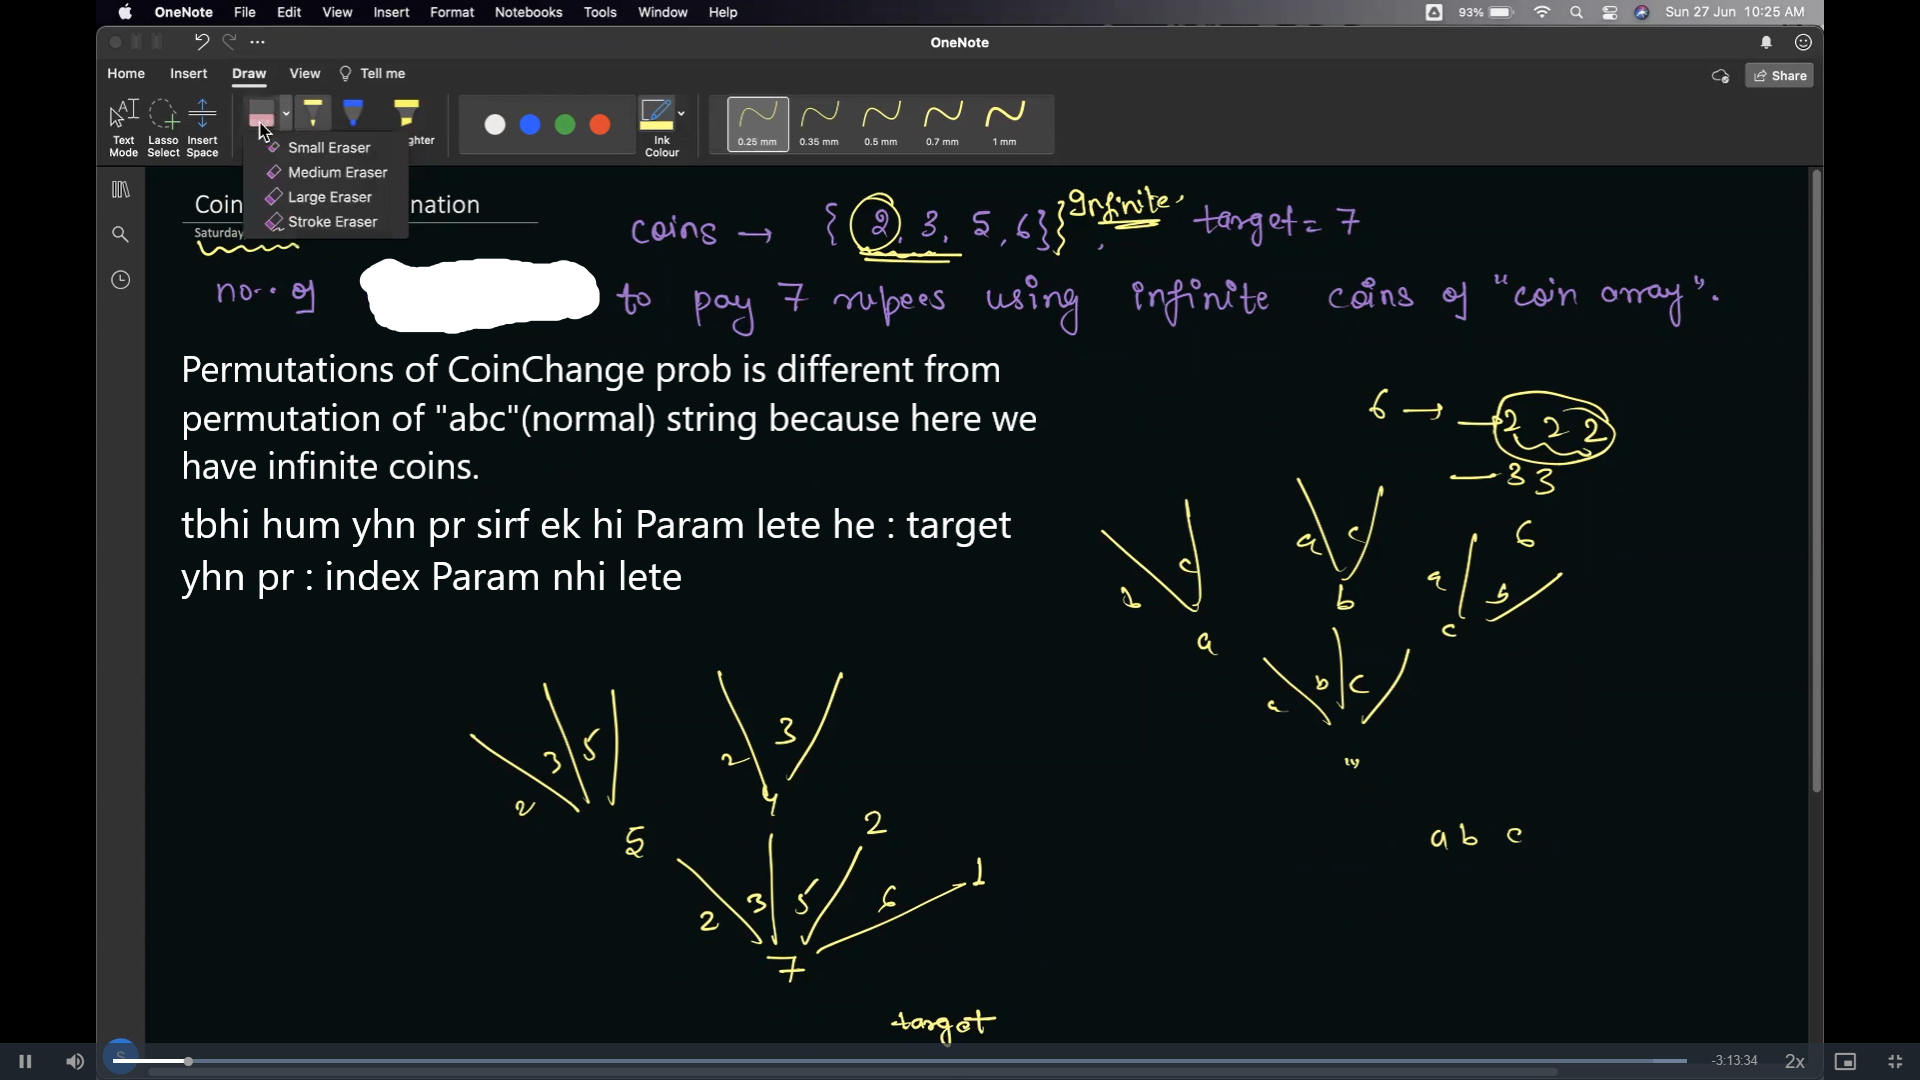 OneNote File Edit View Insert Format Notebooks Tools Window Help 93% Sun 27 Jun 10:25 AM
OneNote
Home Insert Draw View Tell me Share
Text Mode Lasso Select Insert Space ghter Ink Colour 0.25 mm 0.35 mm 0.5 mm 0.7 mm 1 mm
Small Eraser
Medium Eraser
Large Eraser
Stroke Eraser
Coin nation
Saturday
coins → { 2, 3, 5, 6}} Infinite. target = 7
no. of to pay 7 rupees using infinite coins of "coin array".
Permutations of CoinChange prob is different from
permutation of "abc"(normal) string because here we
have infinite coins.
tbhi hum yhn pr sirf ek hi Param lete he : target
yhn pr : index Param nhi lete
6 → 2 2 2
3 3
b c a c a b 6
a b c
a b c
""
a b c
2 3 5 2 3
5 4 2 1
2 3 5 6
7
target
S
-3:13:34 2x